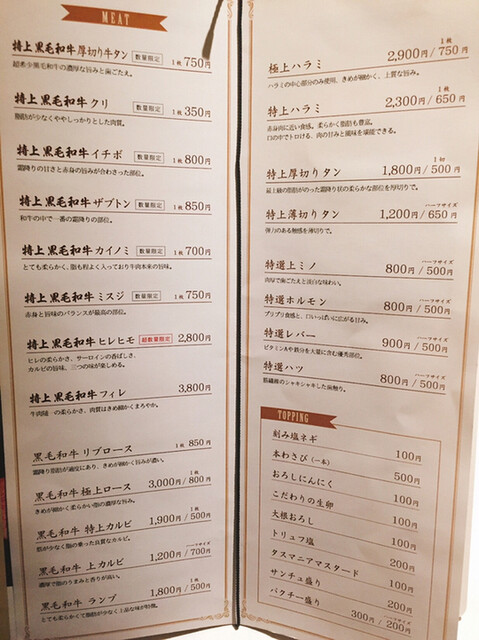 MEAT
特上黒毛和牛厚切り牛タン 数量限定 1枚 750円
超希少黒毛和牛の濃厚な旨みと歯ごたえ。
特上黒毛和牛クリ 数量限定 1枚 350円
脂肪が少なくややしっかりとした肉質。
特上黒毛和牛イチボ 数量限定 1枚 800円
霜降りの甘さと赤身の旨みが合わさった部位。
特上黒毛和牛ザブトン 数量限定 1枚 850円
和牛の中で一番の霜降りの部位。
特上黒毛和牛カイノミ 数量限定 1枚 700円
とても柔らかく、脂も程よく入っており牛肉本来の旨味。
特上黒毛和牛ミスジ 数量限定 1枚 750円
赤身と旨味のバランスが最高の部位。
特上黒毛和牛ヒレヒモ 超数量限定 2,800円
ヒレの柔らかさ、サーロインの香ばしさ、
カルビの旨味、三つの味が楽しめる。
特上黒毛和牛フィレ 3,800円
牛肉随一の柔らかさ、肉質はきめ細かくまろやか。
黒毛和牛リブロース 1枚 850円
霜降り脂肪が適度にあり、きめが細かく旨みが濃い。
黒毛和牛極上ロース 3,000円/1枚 800円
きめが細かく柔らかい脂の濃厚な旨み。
黒毛和牛 特上カルビ 1,900円/1枚 500円
筋が少なく脂の乗った良質なカルビ。
黒毛和牛 上カルビ 1,200円/ハーフサイズ 700円
濃厚で脂のうまみと香りが高い。
黒毛和牛 ランプ 1,800円/1枚 500円
とても柔らかくて脂肪が少なく上品な味が特徴。
極上ハラミ 2,900円/1枚 750円
ハラミの中心部分のみ使用、きめが細かく、上質な旨み。
特上ハラミ 2,300円/1枚 650円
赤身肉に近い食感。柔らかく脂肪も豊富。
口の中でトロける、肉の甘みと風味を堪能できる。
特上厚切りタン 1,800円/1切 500円
最上級の脂肪がのった霜降り状の柔らかな部位を厚切りで。
特上薄切りタン 1,200円/ハーフサイズ 650円
弾力のある触感を薄切りで。
特選上ミノ 800円/ハーフサイズ 500円
肉厚で歯ごたえと淡白な味わい。
特選ホルモン 800円/ハーフサイズ 500円
プリプリ食感と、口いっぱいに広がる甘み。
特選レバー 900円/ハーフサイズ 500円
ビタミンAや鉄分を大量に含む優秀部位。
特選ハツ 800円/ハーフサイズ 500円
筋繊維のシャキシャキした歯触り。
TOPPING
刻み塩ネギ 100円
本わさび(一本) 500円
おろしにんにく 100円
こだわりの生卵 100円
大根おろし 100円
トリュフ塩 200円
タスマニアマスタード 100円
サンチュ盛り 200円
パクチー盛り 300円/ハーフサイズ 200円